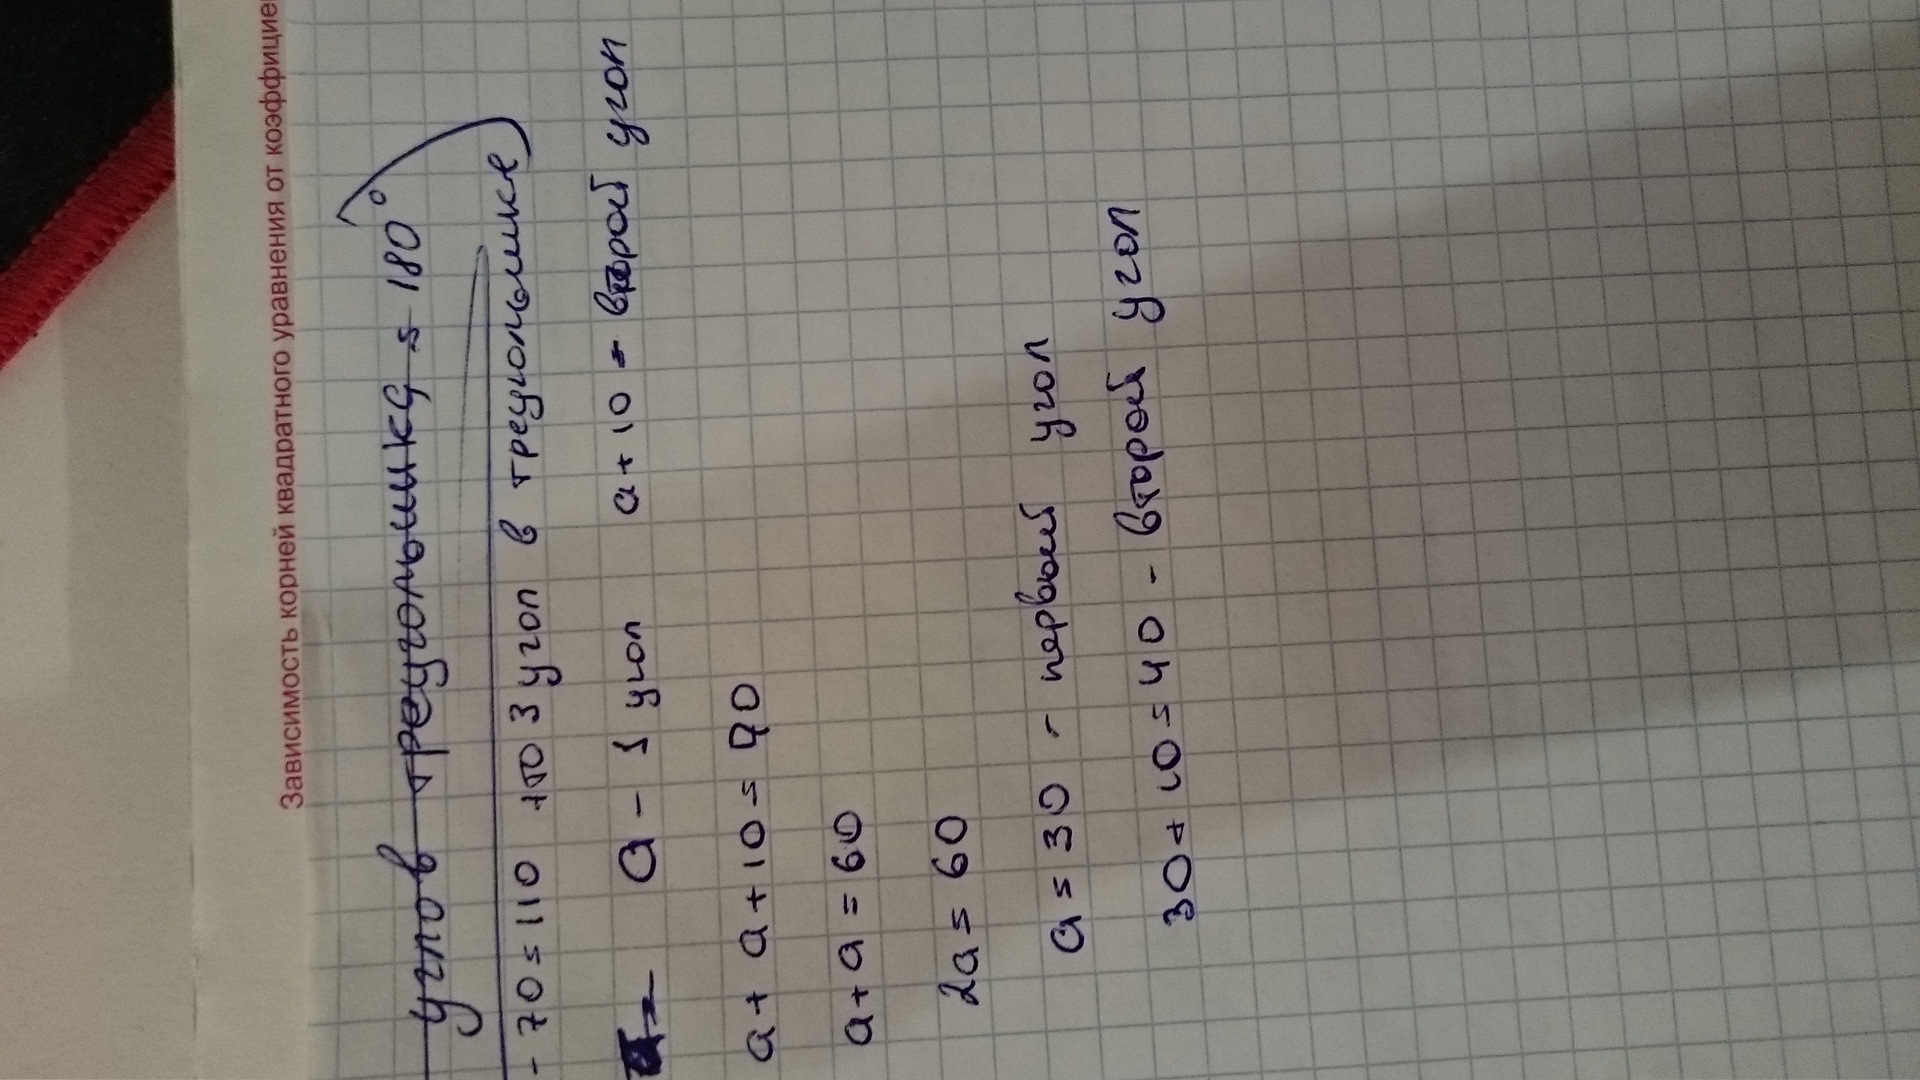 Зависимость корней квадратного уравнения от коэффицие
углов треугольника = 180°
- 70 = 110 то 3 угол в треугольнике)
a - 1 угол a + 10 = второй угол
a + a + 10 = 70
a + a = 60
2a = 60
a = 30 - первый угол
30 + 10 = 40 - второй угол